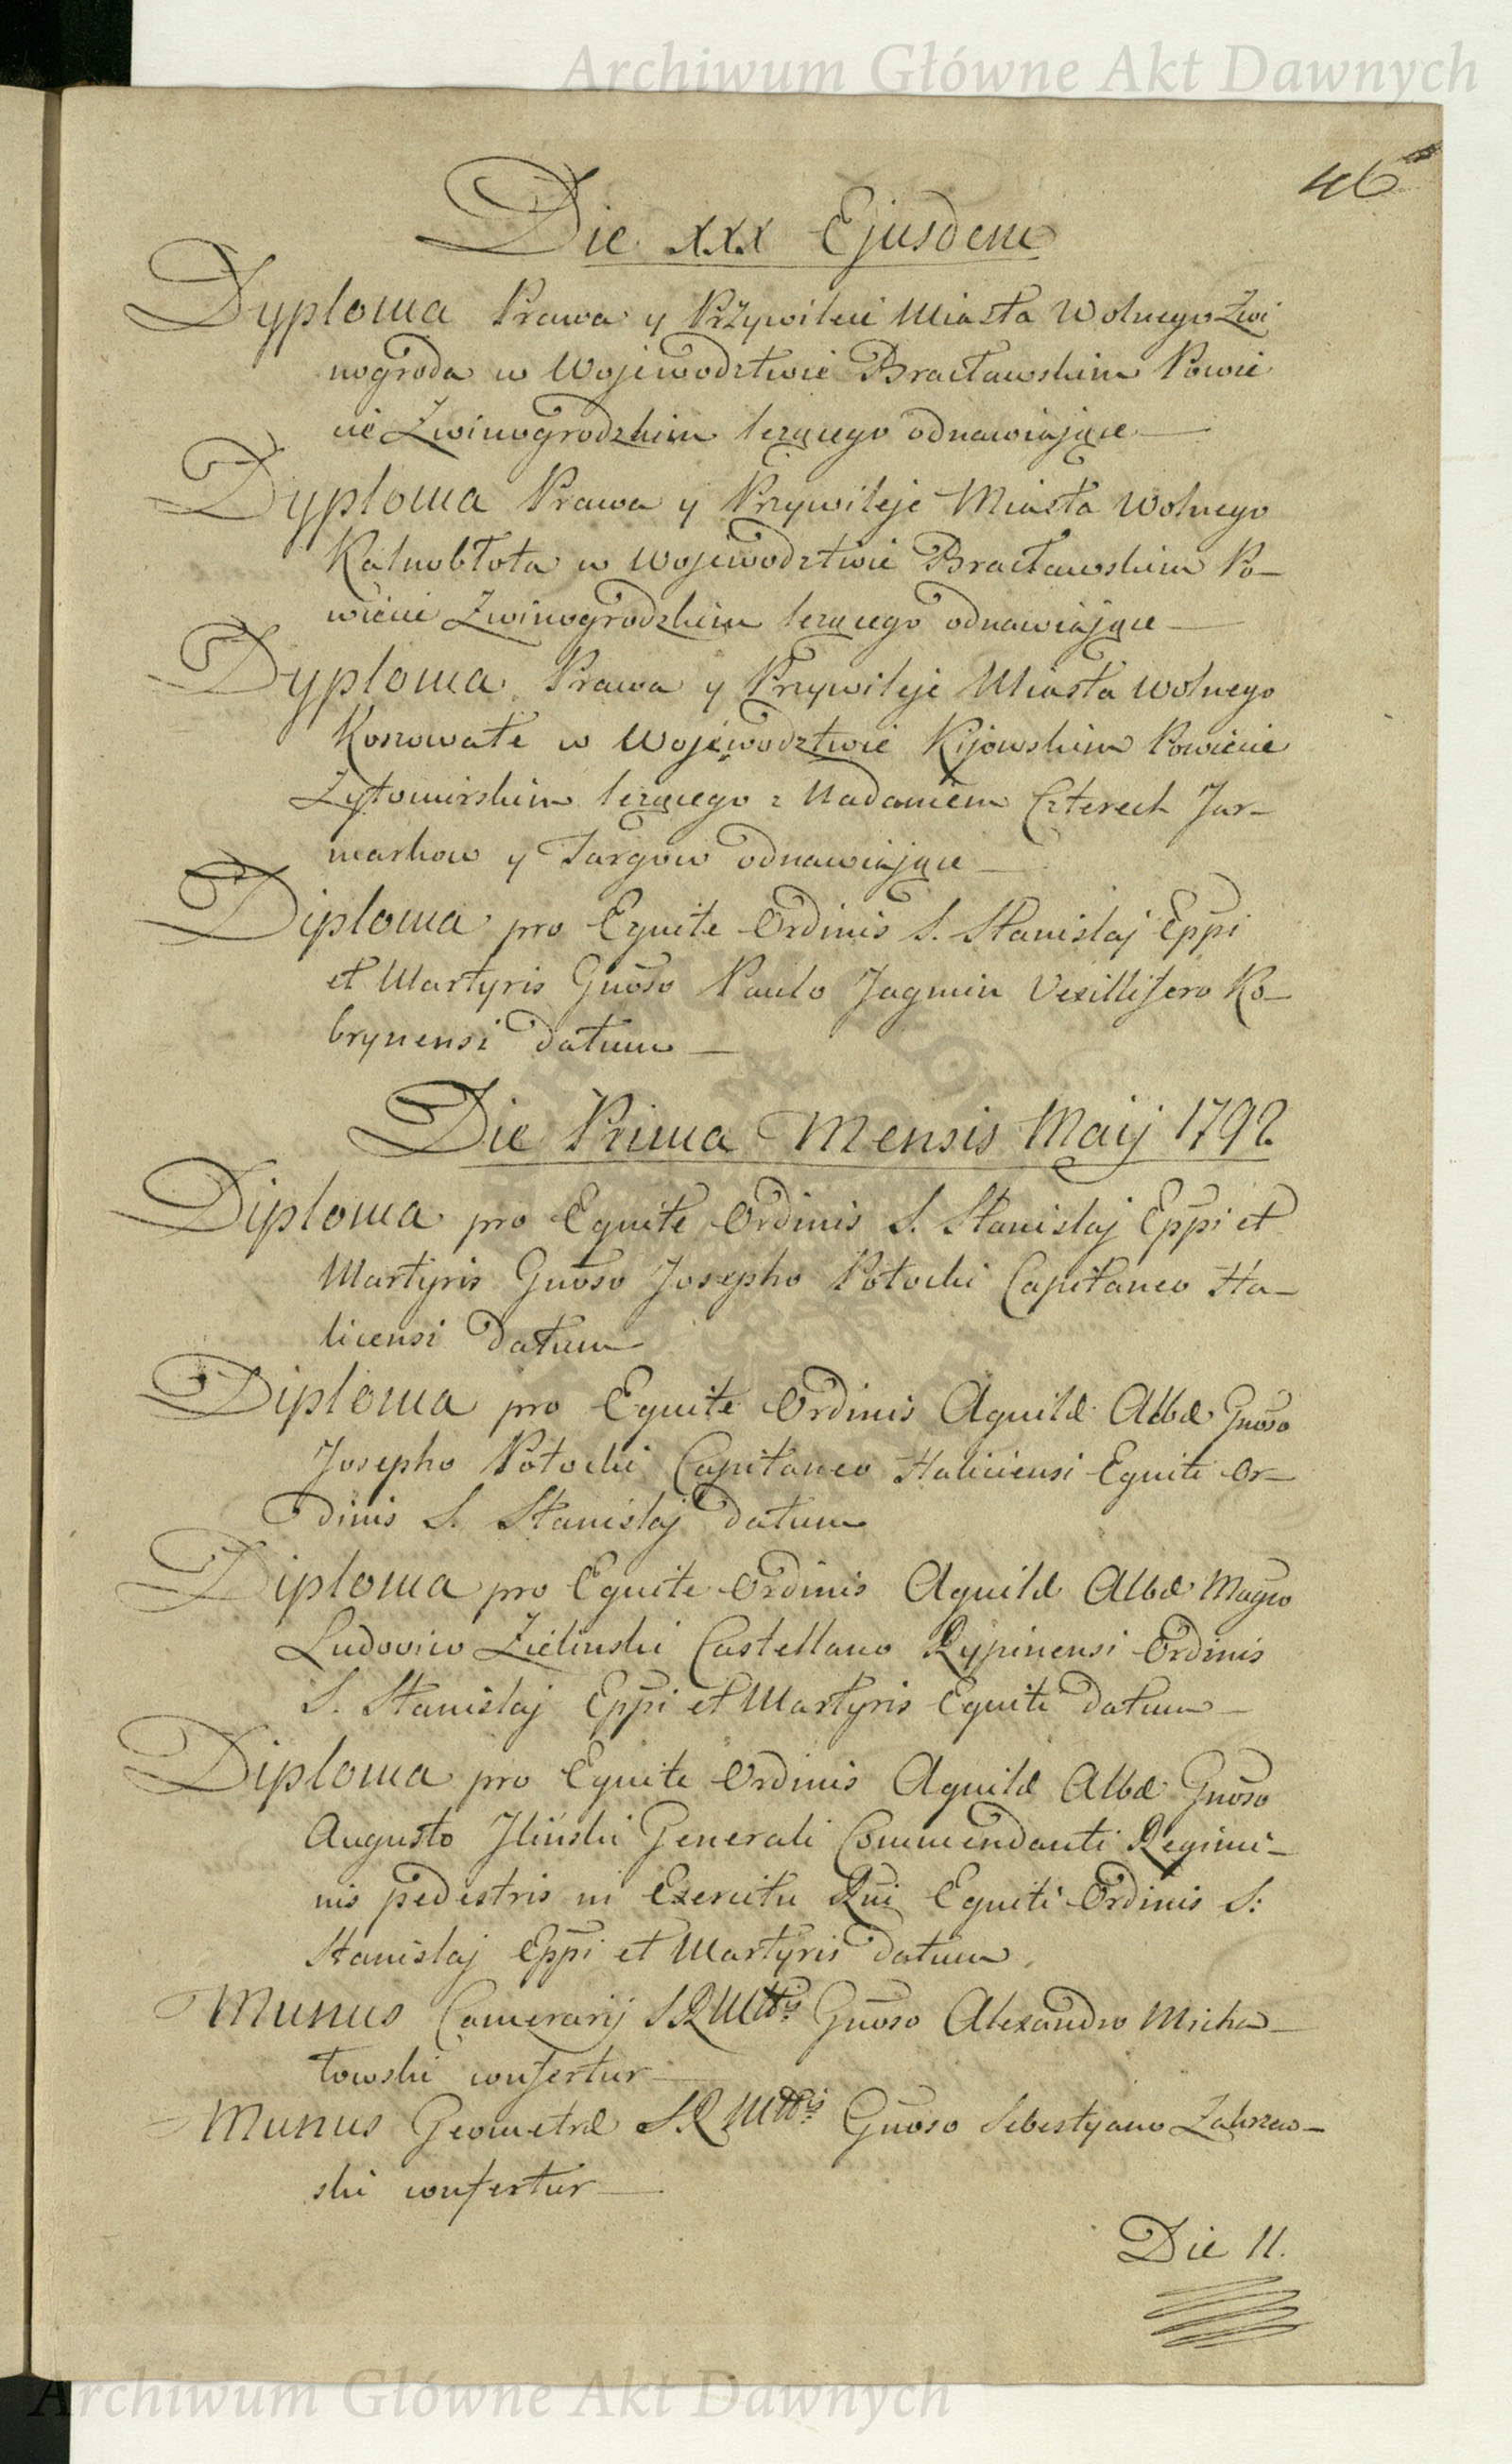 Archiwum Główne Akt Dawnych
46
Die xxx Ejusdem
Dyploma Prawa y Przywileie Miasta Wolnego Zwi
nogroda w Wojewodztwie Bracławskim Powie
cie Zwinogrodzkim leżącego odnawiające
Dyploma Prawa y Przywileje Miasta Wolnego
Kalnobłota w Wojewodztwie Bracławskim Po–
wiecie Zwinogrodzkim leżącego odnawiające
Dyploma Prawa y Przywileje Miasta Wolnego
Konowałe w Wojewodztwie Kijowskim Powiecie
Zytomirskim leżącego z Nadaniem Czterech Jar–
markow y Targow odnawiające
Diploma pro Equite Ordinis S. Stanislaj Eppi
et Martyris Gnoso Paulo Jagmin Vexillifero Ko–
brynensi datum
Die Prima Mensis Maij 1792.
Diploma pro Equite Ordinis S. Stanislaj Eppi et
Martyris Gnoso Josepho Potocki Capitaneo Ha–
licensi datum
Diploma pro Equite Ordinis Aquilæ Albæ Gnoso
Josepho Potocki Capitaneo Haliciensi Equiti Or–
dinis S. Stanislaj datum
Diploma pro Equite Ordinis Aquilæ Albæ Magco
Ludovico Zielinski Castellano Rypinensi Ordinis
S. Stanislaj Eppi et Martyris Equiti datum
Diploma pro Equite Ordinis Aquilæ Albæ Gnoso
Augusto Jlinski Generali Commendanti Regimi–
nis pedestris in Exercitu Rni Equiti Ordinis S:
Stanislaj Eppi et Martyris datum.
Munus Camerarij SRMttis Gnoso Alexandro Micha–
łowski confertur
Munus Geometræ SRMttis Gnoso Sebestyano Zakrzew–
ski confertur
Die II.
Archiwum Główne Akt Dawnych